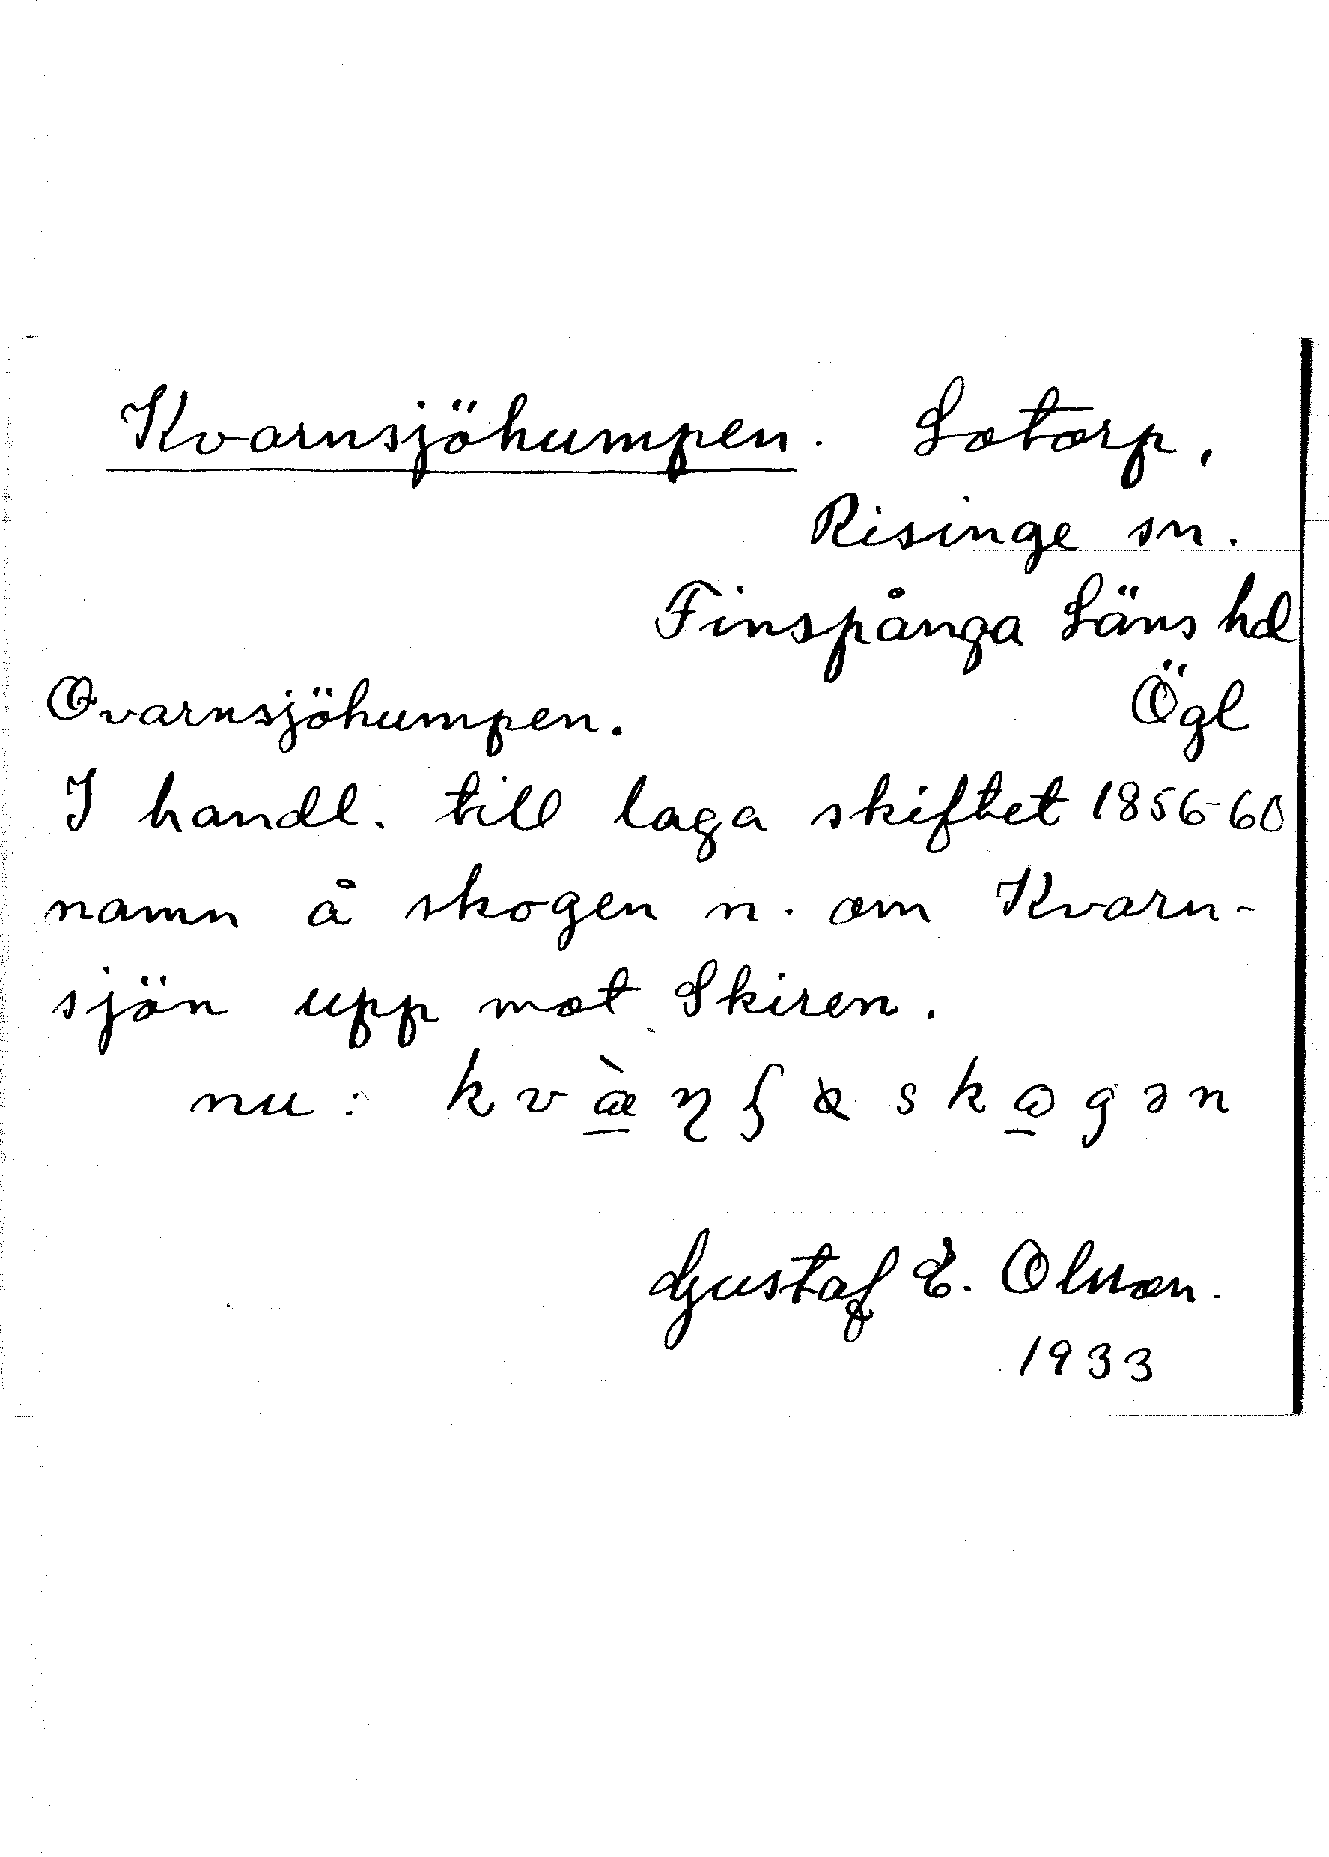 Kvarnsjöhumpen. Lotorp,
Risinge sn.
Finspånga Läns hd
Qvarnsjöhumpen. Ögl
I handl. till laga skiftet 1856-60
namn å skogen n. om Kvarn-
sjön upp mot Skiren.
nu:
Gustaf E. Olsson.
1933